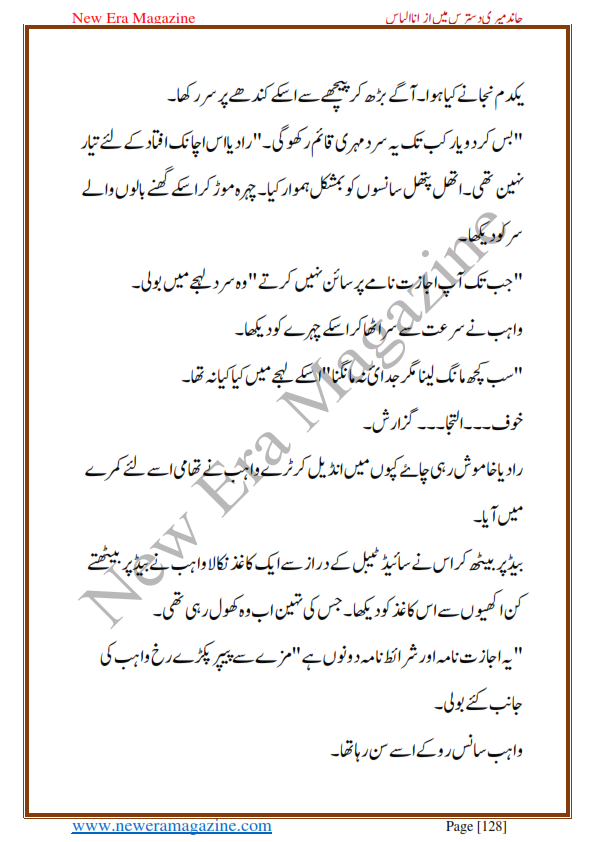 New Era Magazine
چاند میری دسترس میں از انا الیاس
یکدم نجانے کیا ہوا۔ آگے بڑھ کر پیچھے سے اسکے کندھے پر سر رکھا۔
"بس کر دو یار کب تک یہ سرد مہری قائم رکھو گی۔" رادیا اس اچانک افتاد کے لئے تیار
نہین تھی۔ اتھل پتھل سانسوں کو بمشکل ہموار کیا۔ چہرہ موڑ کر اسکے گھنے بالوں والے
سر کو دیکھا۔
"جب تک آپ اجازت نامے پر سائن نہیں کرتے" وہ سرد لہجے میں بولی۔
واہب نے سرعت سے سر اٹھا کر اسکے چہرے کو دیکھا۔
"سب کچھ مانگ لینا مگر جدائ نہ مانگنا" اسکے لہجے میں کیا کیا نہ تھا۔
خوف۔۔۔ التجا۔۔۔ گزارش۔
رادیا خاموش رہی چاۓ کپوں میں انڈیل کر ٹرے واہب نے تھامی اسے لئے کمرے
میں آیا۔
بیڈ پر بیٹھ کر اس نے سائیڈ ٹیبل کے دراز سے ایک کاغذ نکالا واہب نے بیڈ پر بیٹھتے
کن اکھیوں سے اس کاغذ کو دیکھا۔ جس کی تہین اب وہ کھول رہی تھی۔
"یہ اجازت نامہ اور شرائط نامہ دونوں ہے" مزے سے پیپر پکڑے رخ واہب کی
جانب کئے بولی۔
واہب سانس روکے اسے سن رہا تھا۔
New Era Magazine
www.neweramagazine.com
Page [128]